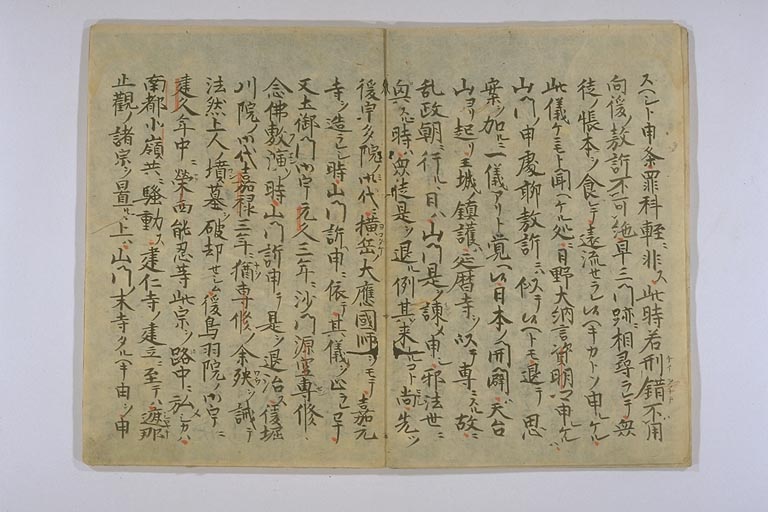 スヘシト申条罪科軽ニ非ス此時若刑錯不用
向後ノ敖訴不可絶早三門跡ニ相尋ラレテ衆
徒ノ張本ヲ食レテ遠流セラレ候ヘキカトソ申ケル
此儀ケニモト聞ヘケル処ニ日野大納言資明卿申ケルハ
山門ノ申処聊敖訴ニハ似テ候ヘトモ退テ思
案ヲ加ルニ一儀アリト覚候日本ノ開闢ハ天台
山ヨリ起リ王城ノ鎮護ハ延暦寺ヲ以テ専トス故ニ
乱政朝ニ行ルヽ日ハ山門是ヲ諫メ申シ邪法世ニ
興スル時ハ衆徒是ヲ退ル例其来ルコト尚先ツ
後宇多院ノ御代ニ横岳大應國師ニモテ嘉元
寺ヲ造ラレシ時山門訴申ニ依テ其儀ヲ止ラレ早
又土御門ノ御宇元久三年ニ沙門源空専修
念佛敷演ノ時山門訴申テ是ヲ退治ス後堀
川院ノ御代嘉禄三年ニ猶専修ノ余殃ヲ誡テ
法然上人ノ墳墓ヲ破却セシム後鳥羽院ノ御宇ニ
建久年中ニ榮西能忍等此宗ヲ路中ニ弘メシカハ
南都北嶺共ニ騒動ス建仁寺ノ建立ニ至テハ遮那
止觀ノ諸宗ヲ置ルヽ上ハ山門ノ末寺タルヘキ由ヲ申